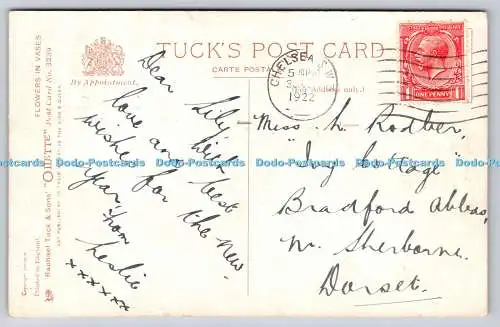 TUCK'S POST CARD
CARTE POSTA
By Appointment.
(For Address only.)
FLOWERS IN VASES
Raphael Tuck & Sons' "OILETTE" Post Card No. 3239
Printed in England.
CHELSEA S.W.
5
1922
ONE PENNY
Dear Lily with best
love and
wishes for the new
year, from
Leslie
xxxxxx
Miss L. Rodber,
"Ivy Cottage"
Bradford Abbas,
Nr. Sherborne.
Dorset.
Dodo-Postcards Dodo-Postcards Dodo-Postcards Dodo-Postcards Dodo-Postcards Dodo-Postcards